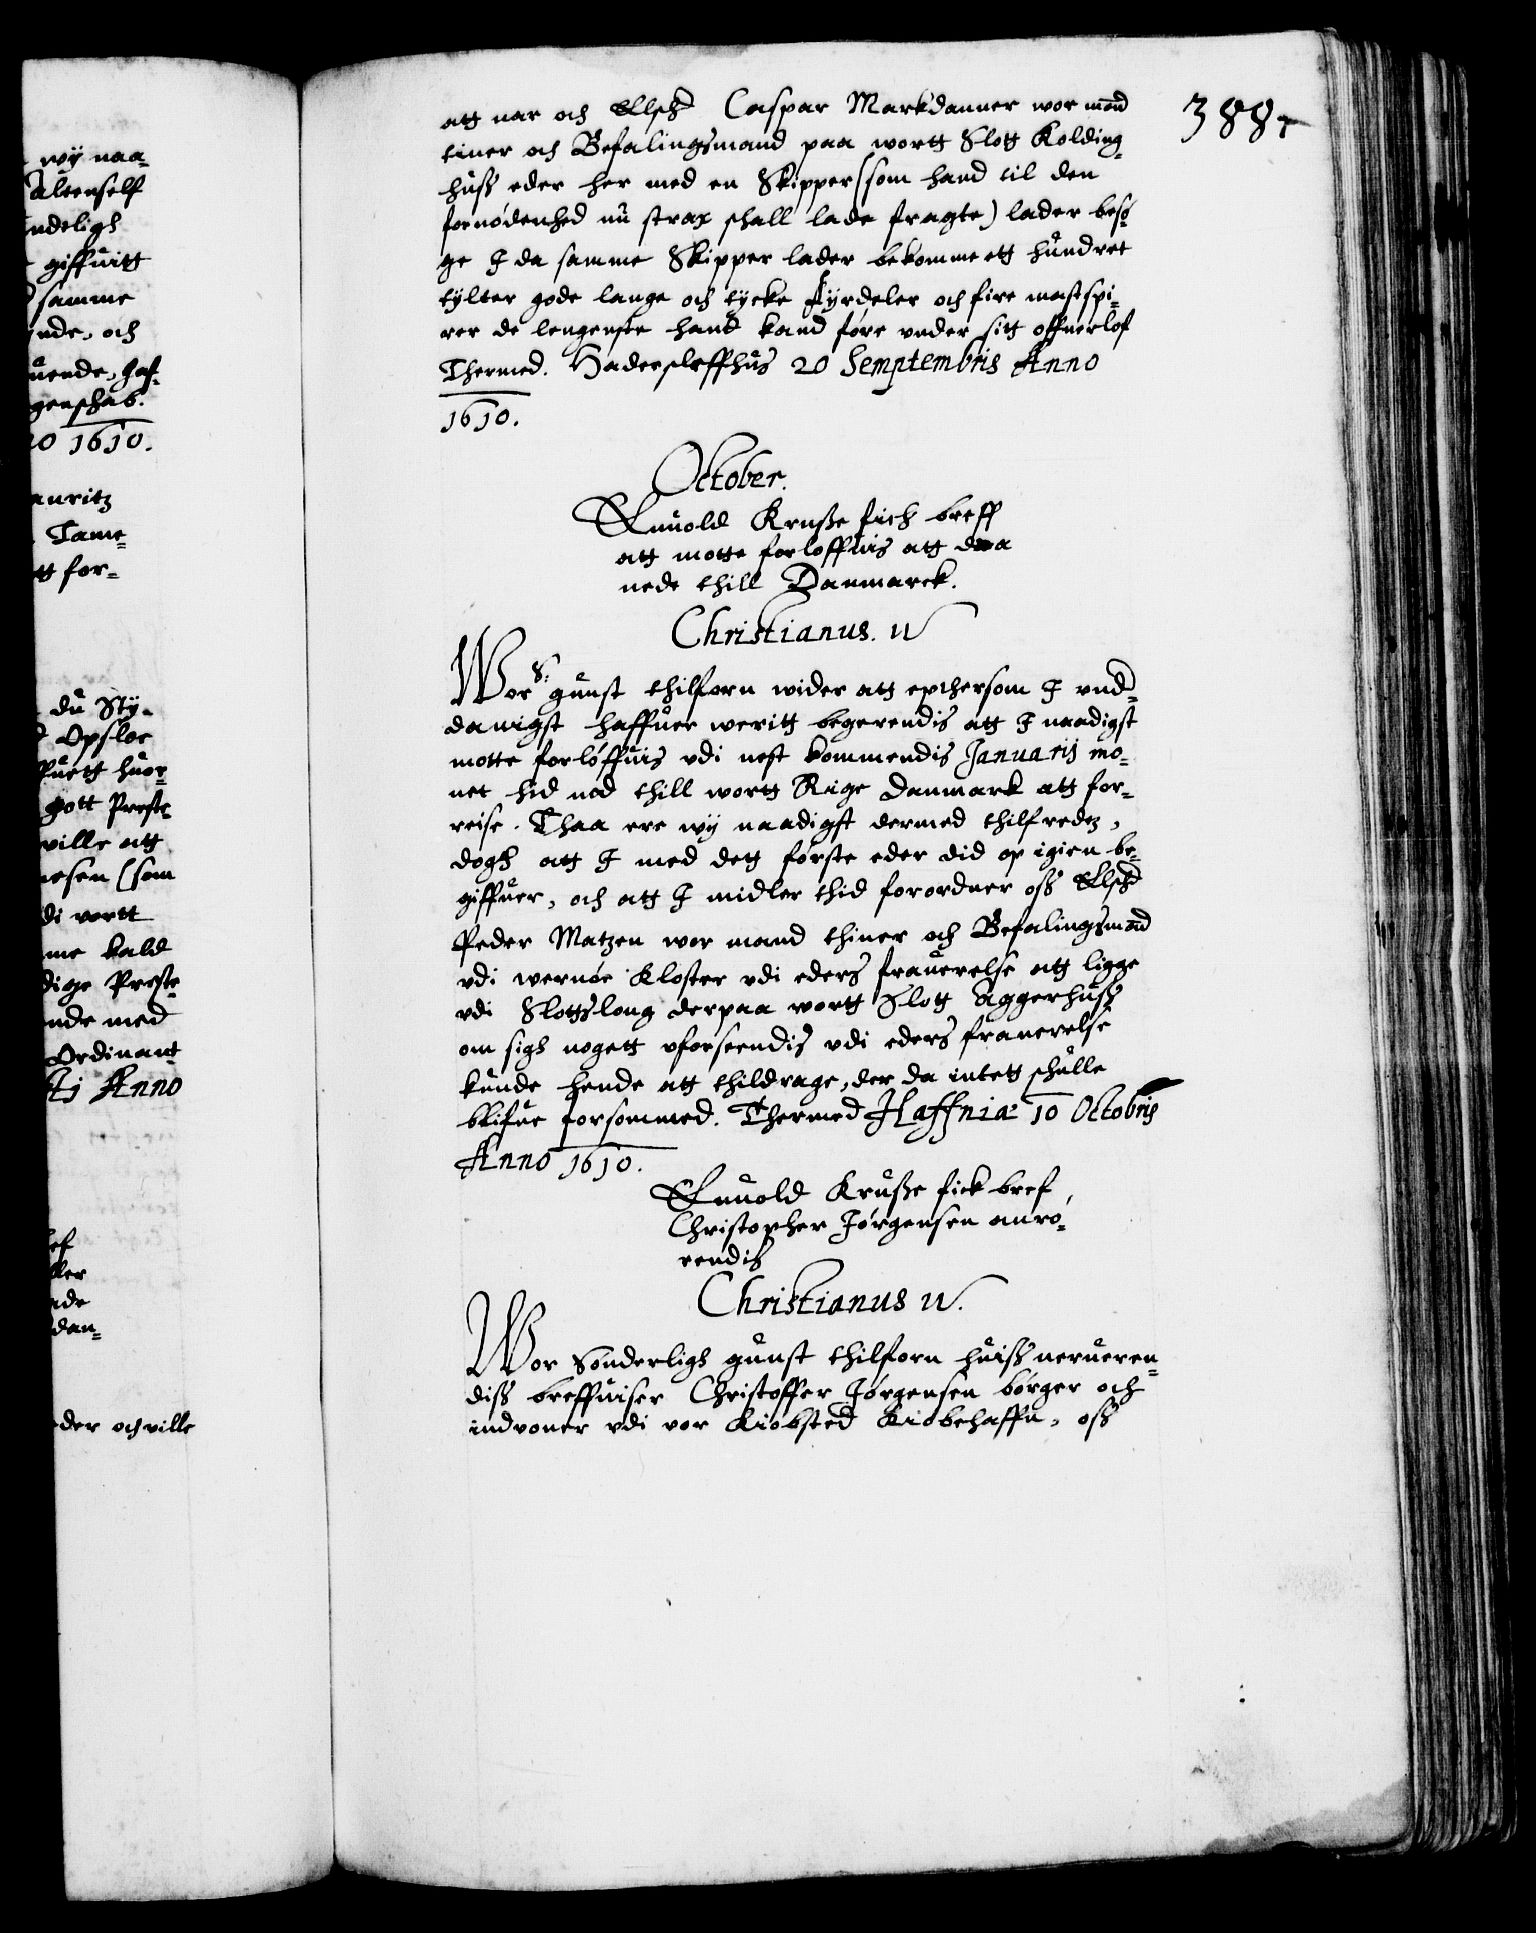 wij naa-
Altenself
ndeligh
giffuitt
samme
ende, och
uende, Haf-
genschab.
1610.
auritz
Tame-
tt for-
du Sty-
Opsloe
huor
gott Preste
ville att
nesen (som
di vortt
me kald
dige Preste-
nde med
Ordinant
Anno
ef
der och ville
388
att nar och Elsch Caspar Markdanner wor mand
tiner och Befalingsmand paa wortt Slott Kolding-
huss eder her med en Skipper (som hand til den
fornødenhed nu strax schall lade fragte) lader besø-
ge I da samme Skipper lader bekomme ett hundret
tylter gode lange och tycke fyrdeler och fire mastspi-
rer de lengenste hand kand føre vnder sitt offuerlof
Thermed. Haderschleffhus 20 Semptembris Anno
1610.
October.
Enuold Kruße fich breff
att motte forloffuis att dra
nede thill Danmarck.
Christianus. IV
Wor S: gunst thilforn wider att epthersom I vnd-
danigst haffuer weritt begerendis att I naadigst
motte forløffuis vdi nest kommendis Januarij mo-
net hid ned thill wortt Rige Danmark att for-
reise. Thaa ere wij naadigst dermed thilfredtz,
dogh att I med dett første eder did op igien be-
giffuer, och att I midler thid forordner oss Elsch
Peder Matzen wor mand thiner och Befalingsmand
vdi wernøe Kloster vdi eders frauerelse att ligge
vdi Slottslong derpaa wortt Slott Aggerhuss
om sigh nogett vforseendis vdi eders frauerelse
kunde hende att thildrage, der da intett schulle
blifue forsommed. Thermed Haffniæ 10 Octobris
Anno 1610.
Enuold Kruße fick bref
Christopher Jørgensen anrø-
rendis
Christianus IV.
Wor Sønderligh gunst thilforn huiss nerueren-
diss breffuiser Christoffer Jørgensen børger och
indvoner vdi vor Kiøbsted Kiøbehaffn, oss